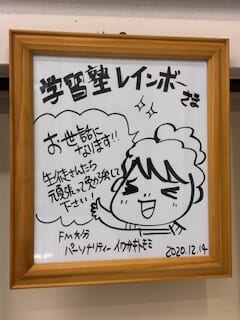 学習塾レインボー
さま
お世話に
なります!!
生徒さんたち
頑張って勉強して
下さい!
FM大分
パーソナリティー イワサキトモミ
2020.12.14